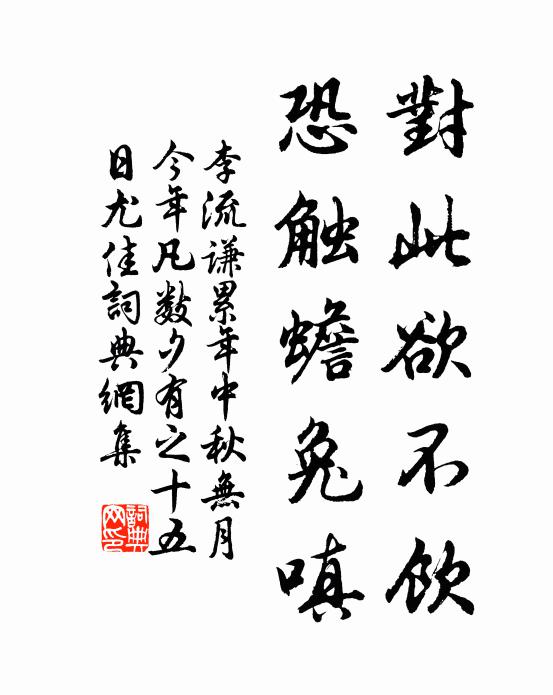 對此欲不飲
恐触蟾兔嗔
李流謙累年中秋無月
今年凡數夕有之十五
日尤佳詞典網集
詞典
网印